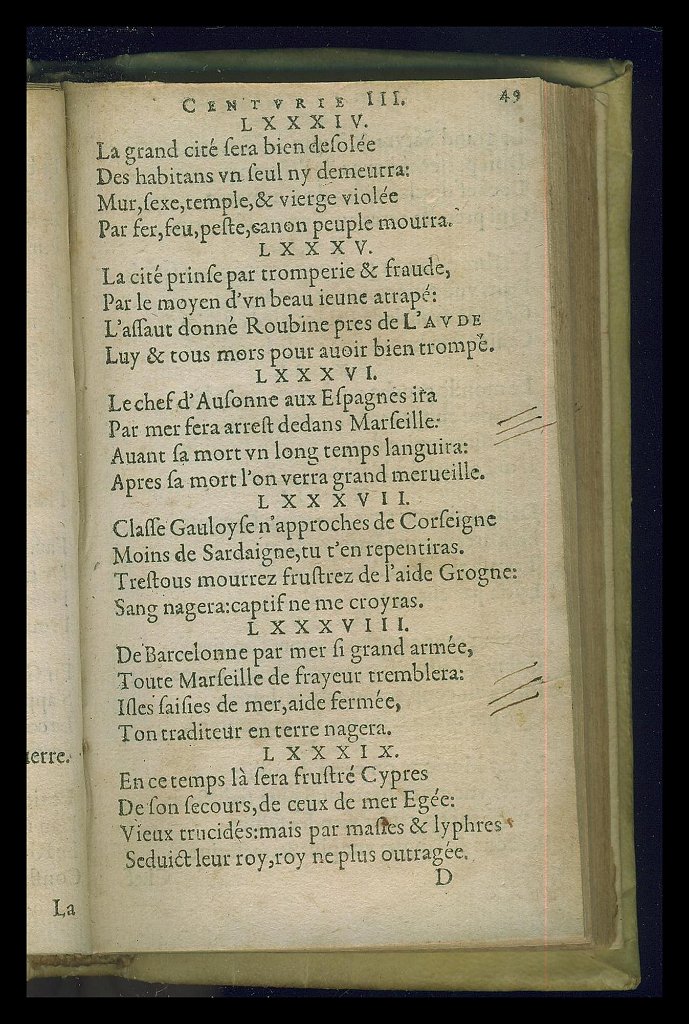 CENTVRIE III. 49
LXXXIV.
La grand cité ſera bien deſolée
Des habitans vn ſeul ny demeurra:
Mur,ſexe,temple,& vierge violée
Par fer,feu,peſte,canon peuple mourra.
LXXXV.
La cité prinſe par tromperie & fraude,
Par le moyen d'vn beau ieune atrapé:
L'aſſaut donné Roubine pres de L'AVDE
Luy & tous mors pour auoir bien trompé.
LXXXVI.
Le chef d'Auſonne aux Eſpagnes ira
Par mer fera arreſt dedans Marſeille:
Auant ſa mort vn long temps languira:
Apres ſa mort l'on verra grand merueille.
LXXXVII.
Claſſe Gauloyſe n'approches de Corſeigne
Moins de Sardaigne,tu t'en repentiras.
Treſtous mourrez fruſtrez de l'aide Grogne:
Sang nagera:captif ne me croyras.
LXXXVIII.
De Barcelonne par mer ſi grand armée,
Toute Marſeille de frayeur tremblera:
Iſles ſaiſies de mer,aide fermée,
Ton traditeur en terre nagera.
LXXXIX.
En ce temps là ſera fruſtré Cypres
De ſon ſecours,de ceux de mer Egée:
Vieux trucidés:mais par maſles & lyphres
Seduict leur roy,roy ne plus outragée.
D
ierre.
La